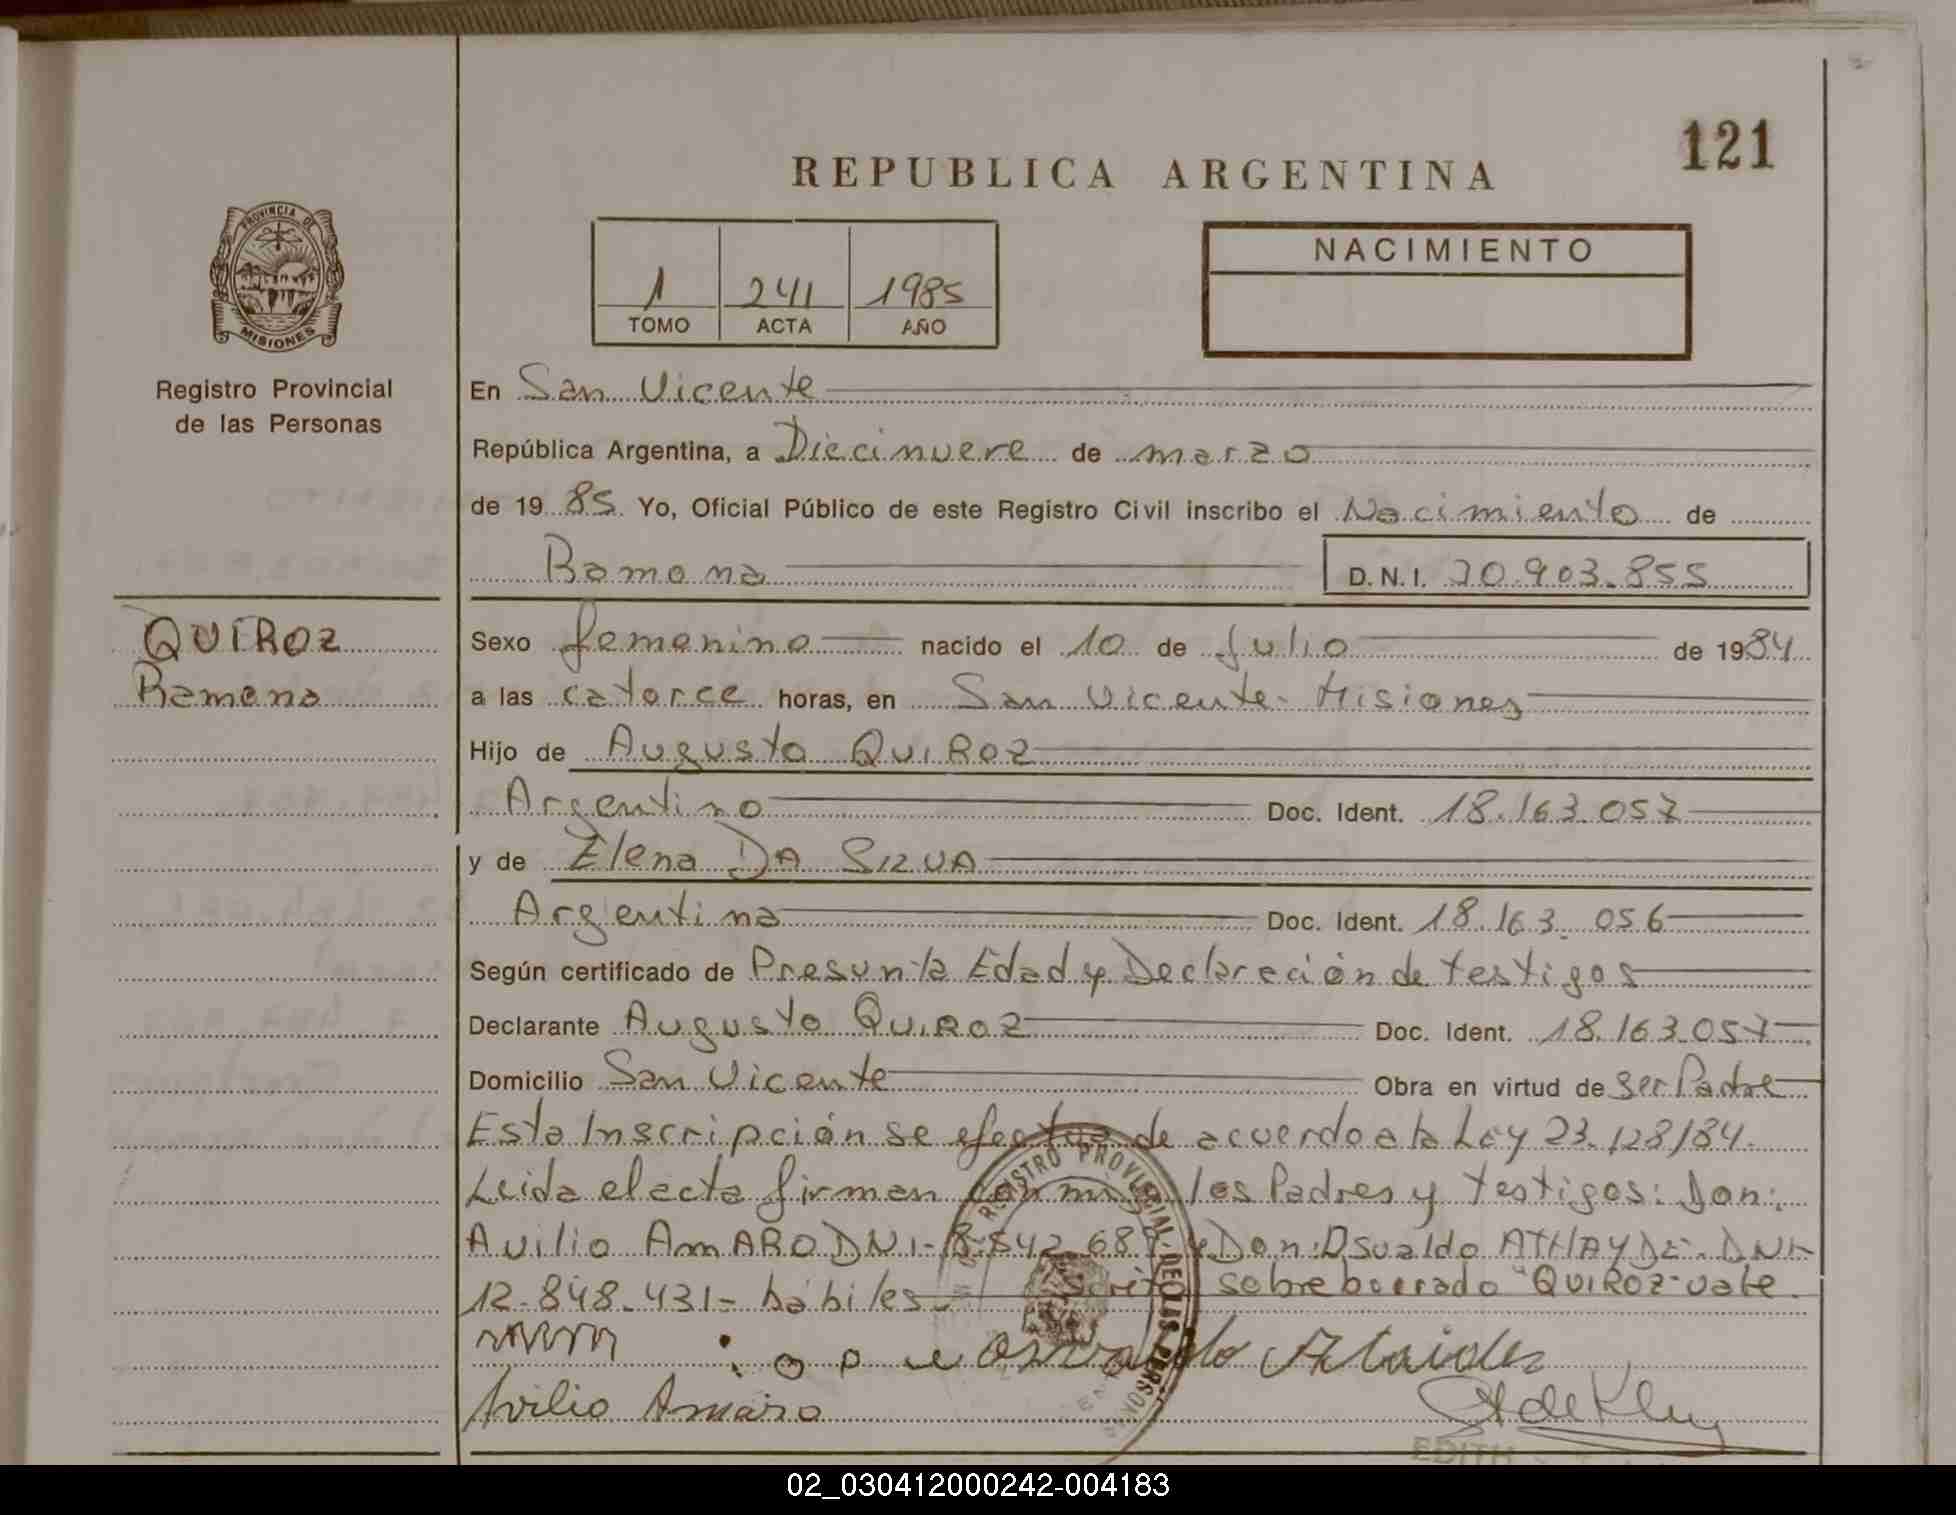 121
REPUBLICA ARGENTINA
PROVINCIA DE
MISIONES
Registro Provincial
de las Personas
1 241 1985
TOMO ACTA AÑO
NACIMIENTO
En San Vicente
República Argentina, a Diecinueve de marzo
de 19 85 Yo, Oficial Público de este Registro Civil inscribo el Nacimiento de
Ramona D.N.I. 30.903.855
QUIROZ
Ramona
Sexo femenino nacido el 10 de Julio de 1984
a las catorce horas, en San Vicente - Misiones
Hijo de Augusto QUIROZ
Argentino Doc. Ident. 18.163.057
y de Elena DA SILVA
Argentina Doc. Ident. 18.163.056
Según certificado de Presunta Edad y Declaración de testigos
Declarante Augusto QUIROZ Doc. Ident. 18.163.057
Domicilio San Vicente Obra en virtud de Ser Padre
Esta Inscripción se efectua de acuerdo a la Ley 23.128/84.
Leida el acta firman conmigo los Padres y testigos: Don:
Avilio AMARO DNI - 8.542.687 y Don: Osvaldo ATHAYDE. DNI-
12.848.431 - hábiles. sobre borrado "QUIROZ" vale.
Avilio Amaro
REGISTRO PROVINCIAL DE LAS PERSONAS
EDITH
02_030412000242-004183